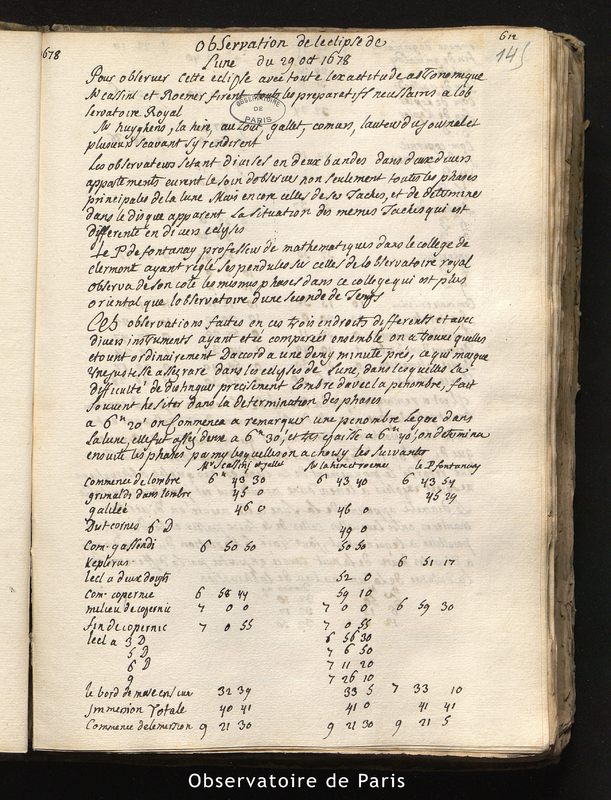 612
145
678
Observation de leclipse de
Lune du 29 oct 1678
Pour observer cette eclipse avec toute lexactetude astronomique
Mr Cassini et Roemer firent touts les preparetifs necessaires a lob
servatoire Royal
OBSERVATOIRE DE PARIS
Mr huyghens, la hire, gallet, comiers, lauteur du journal et
plusieurs scavant sy rendirent
Les observateurs setant divisés en deux bandes dans deux divers
appartements eurent le soin dobserver non seulement toutes les phases
principales de la lune Mais encore celles de ses Taches, et de determiner
dans le disque apparent la situation des memes Taches qui est
differente en divers eclypses
Le P. de fontenay professeur de mathematiques dans le college de
clermont ayant reglé ses pendules sur celles de lobservatoire royal
observa de son coté les mesmes phases dans ce college qui est plus
oriental que lobservatoire dune seconde de Temps
Ces observations faites en ces trois endroits differents et avec
divers instruments ayant eté comparées ensemble on a trouvé quelles
etoient ordinairement daccord a une demy minute prés, ce qui marque
une justesse assez rare dans les eclypses de lune, dans lesquelles la
difficulté de distinguer precisement lombre davec la penombre, fait
souvent hesiter dans la determination des phases
a 6h 20' on commenca a remarquer une penombre legere dans
la lune, elle fut assez dense a 6h 30', et tres epaisse a 6h 40', on determina
ensuite les phases parmy lesquelles on a choisy les suivantes
Mrs Cassini et gallet Mr la hire et roemer le P. fontenay
commence de lombre 6h 43 30 6 43 40 6 43 54
grimaldi dans lombre 45 0 45 29
galilée 46 0 46 0
Dut cornes 6 D 49 0
Com. gassendi 6 50 50 50 50
Keplerus 6 51 17
lecl a deux doigts 52 0
Com. copernic 6 58 44 59 10
melieu de copernic 7 0 0 7 0 0 6 59 30
fin de copernic 7 0 55 7 0 55
lecl a 3 D 6 56 30
5 D 7 6 50
6 D 7 11 20
9 7 26 10
le bord de mare 32 39 33 5 7 33 10
Immersion Totale 40 41 41 0 41 41
Commence de lemersion 9 21 30 9 21 30 9 21 5
Observatoire de Paris